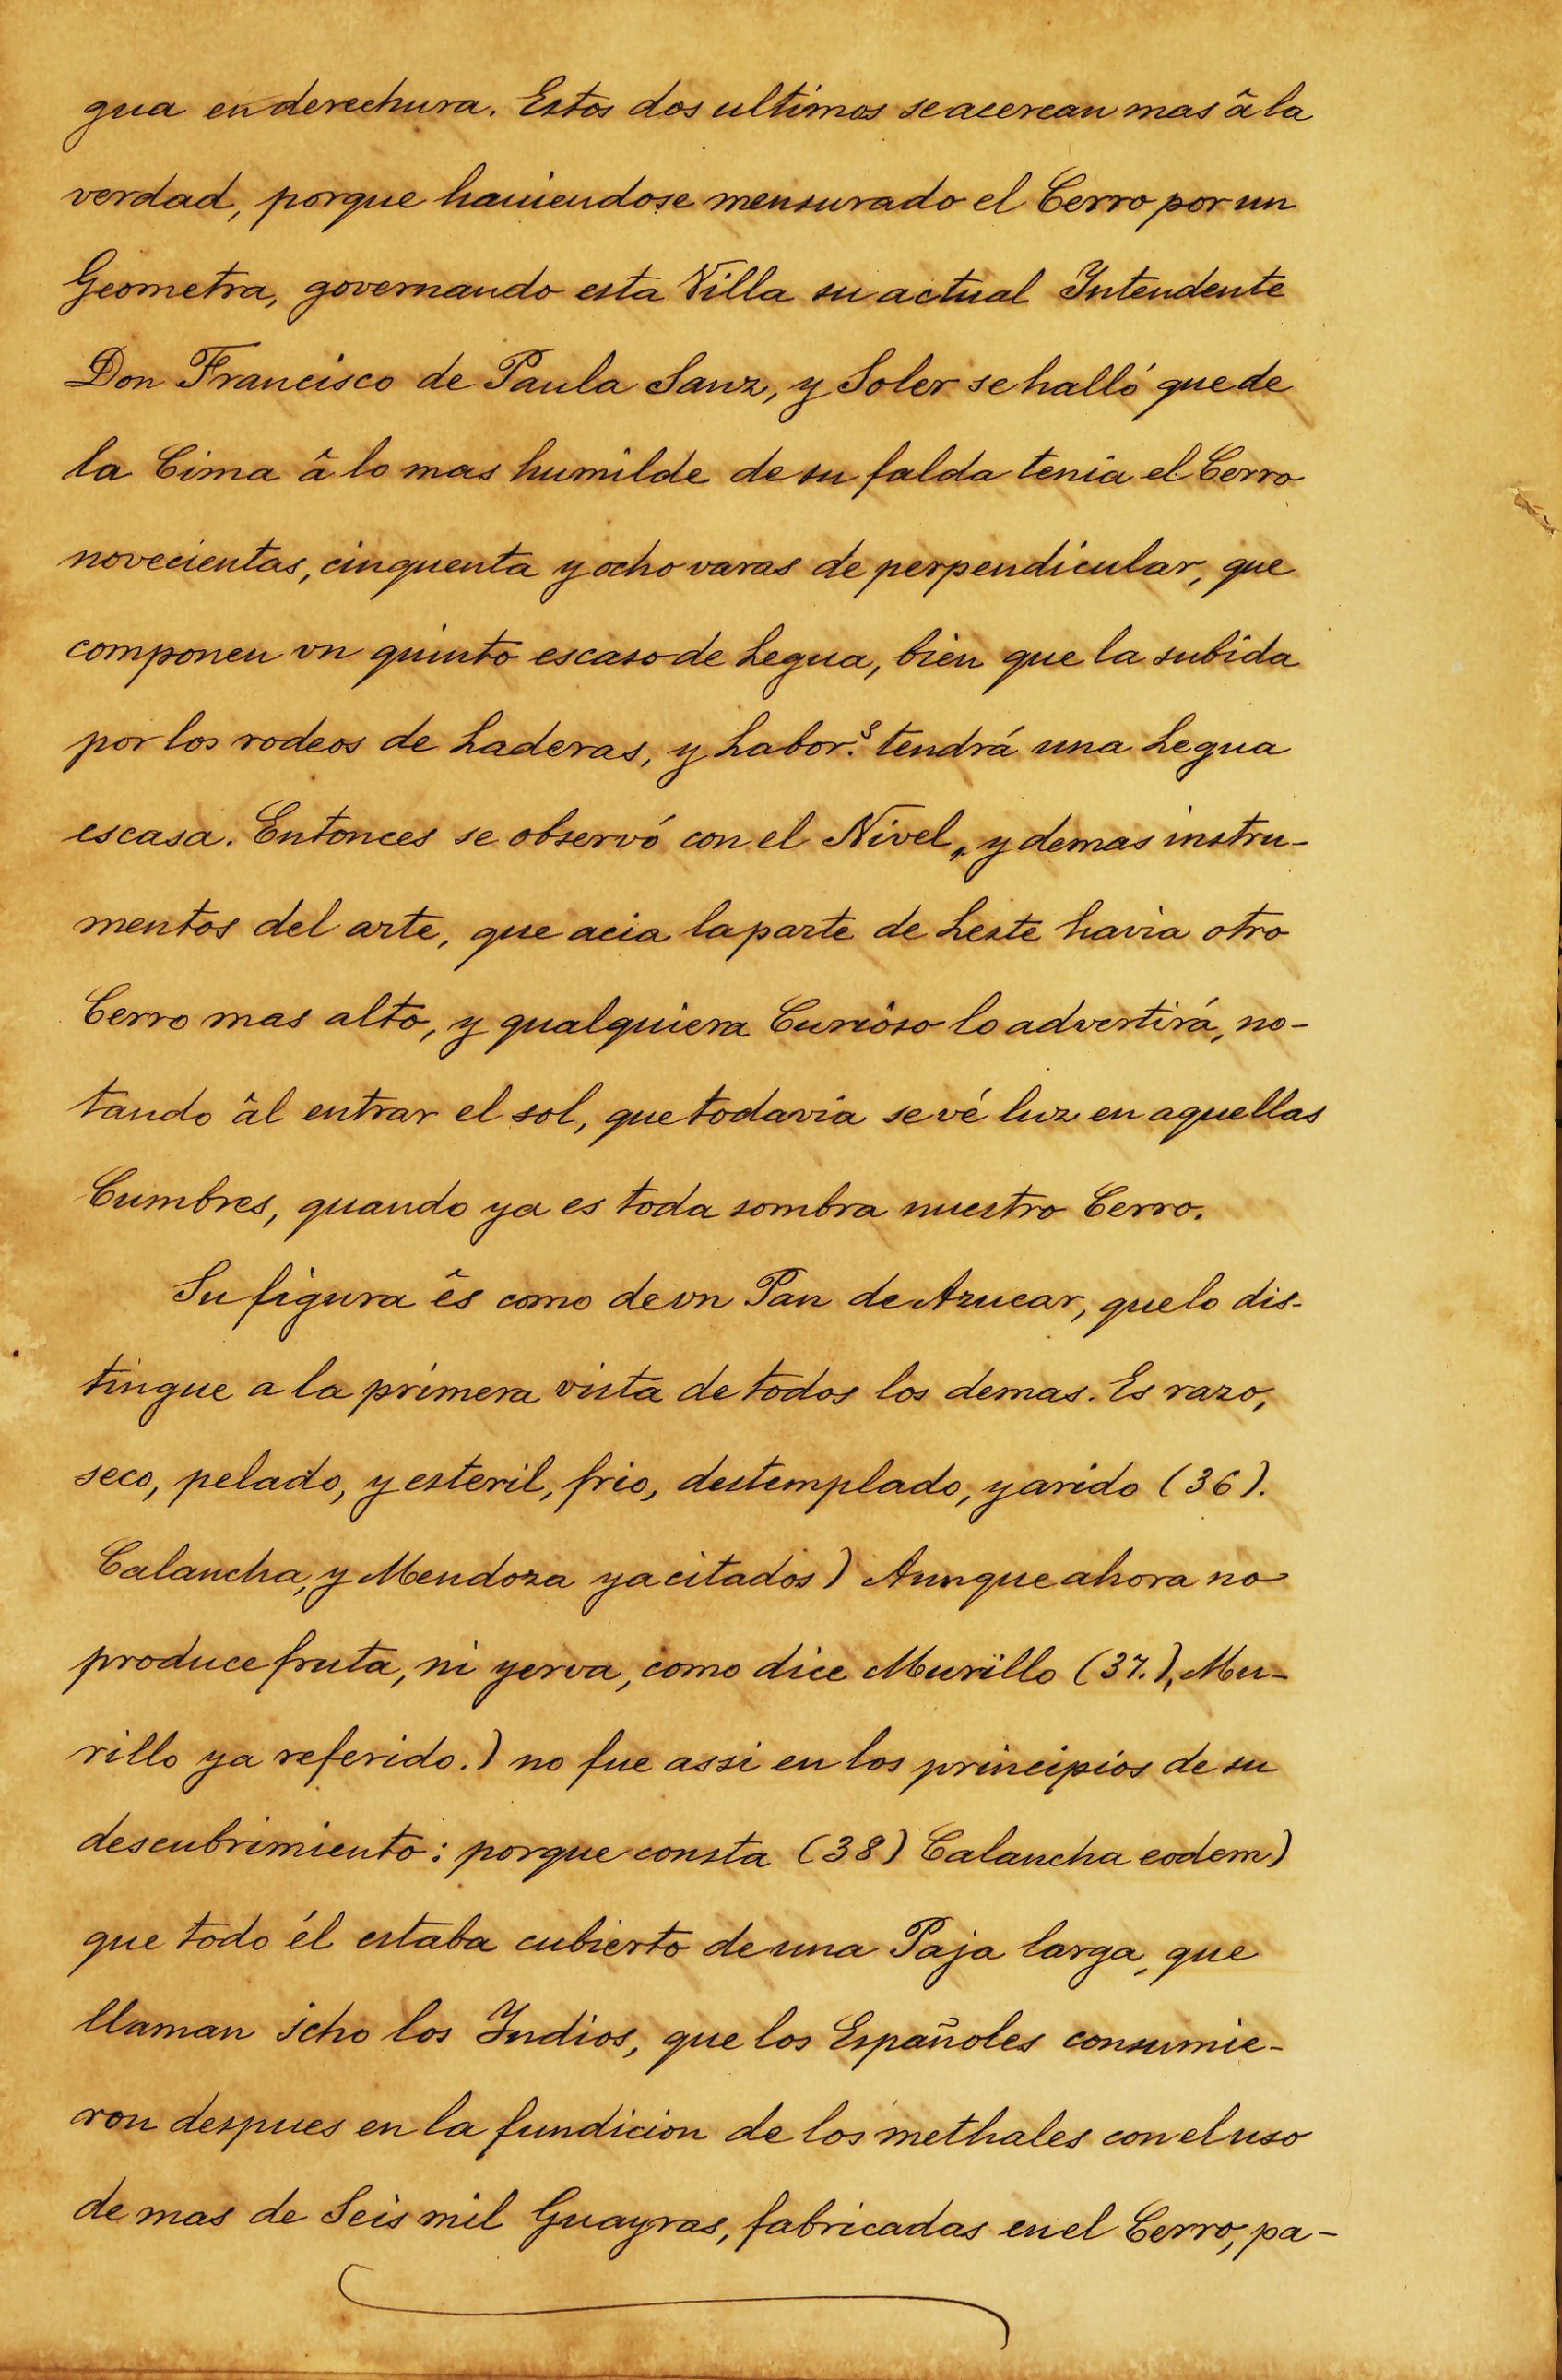 gua en derechura. Estos dos ultimos se acercan mas â la
verdad, porque haviendose mensurado el Cerro por un
Geometra, governando esta Villa su actual Intendente
Don Francisco de Paula Sanz, y Soler se halló que de
la Cima â lo mas humilde de su falda tenia el Cerro
novecientas, cinquenta y ocho varas de perpendicular, que
componen vn quinto escaso de Legua, bien que la subida
por los rodeos de Laderas, y Labor.s tendrá una Legua
escasa. Entonces se observó con el Nivel, y demas instru-
mentos del arte, que acia la parte de Leste havia otro
Cerro mas alto, y qualquiera Curioso lo advertirá, no-
tando âl entrar el sol, que todavia se vé luz en aquellas
Cumbres, quando ya es toda sombra nuestro Cerro.
Su figura ês como de vn Pan de Azucar, que lo dis-
tingue a la primera vista de todos los demas. Es razo,
seco, pelado, y esteril, frio, destemplado, y arido (36).
Calancha, y Mendoza ya citados) Aunque ahora no
produce fruta, ni yerva, como dice Murillo (37.), Mu-
rillo ya referido.) no fue assi en los principios de su
descubrimiento: porque consta (38) Calancha eodem)
que todo él estaba cubierto de una Paja larga, que
llaman icho los Indios, que los Españoles consumie-
ron despues en la fundicion de los methales con el uso
de mas de Seis mil Guayras, fabricadas en el Cerro, pa-